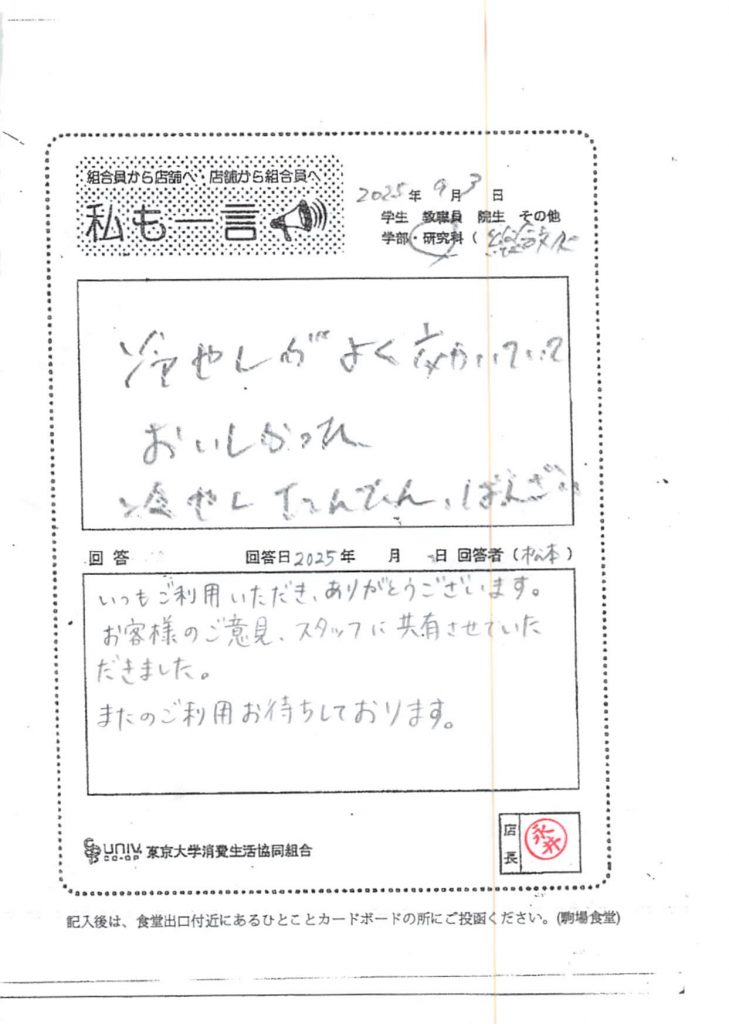 組合員から店舗へ・店舗から組合員へ
私も一言
2025年 9月3日
学生 教職員 院生 その他
学部・研究科(
冷やしがよく効いていて
おいしかった
冷やしたんたんばんざい
回答 回答日2025年 月 日 回答者(松本)
いつもご利用いただき、ありがとうございます。
お客様のご意見、スタッフに共有させていた
だきました。
またのご利用お待ちしております。
店長
永井
UNIV.
CO-OP 東京大学消費生活協同組合
記入後は、食堂出口付近にあるひとことカードボードの所にご投函ください。(駒場食堂)